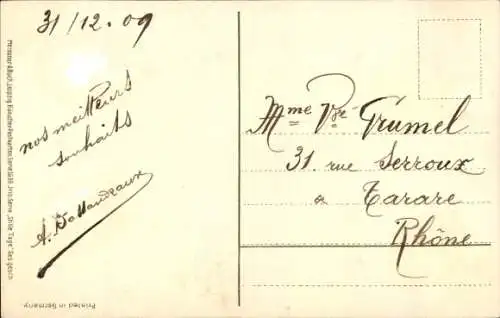 31/12.09
nos meilleurs
souhaits
Mme Vve Grumel
31 rue Serroux
a Tarare
Rhône
Printed in Germany